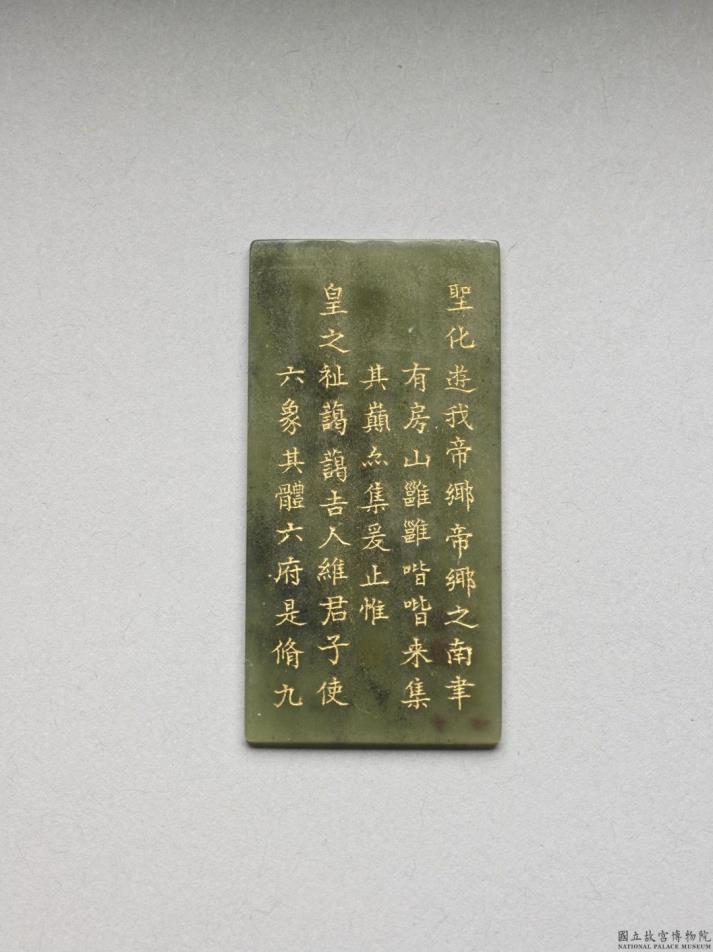 聖化遊我帝鄉帝鄉之南聿
有房山雝雝喈喈来集
其巔亦集爰止惟
皇之祉藹藹吉人維君子使
六象其體六府是脩九
國立故宮博物院
NATIONAL PALACE MUSEUM